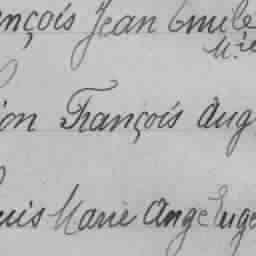 ençois Jean Emile
M.ie
ion François Aug
uis Marie Ange Euge